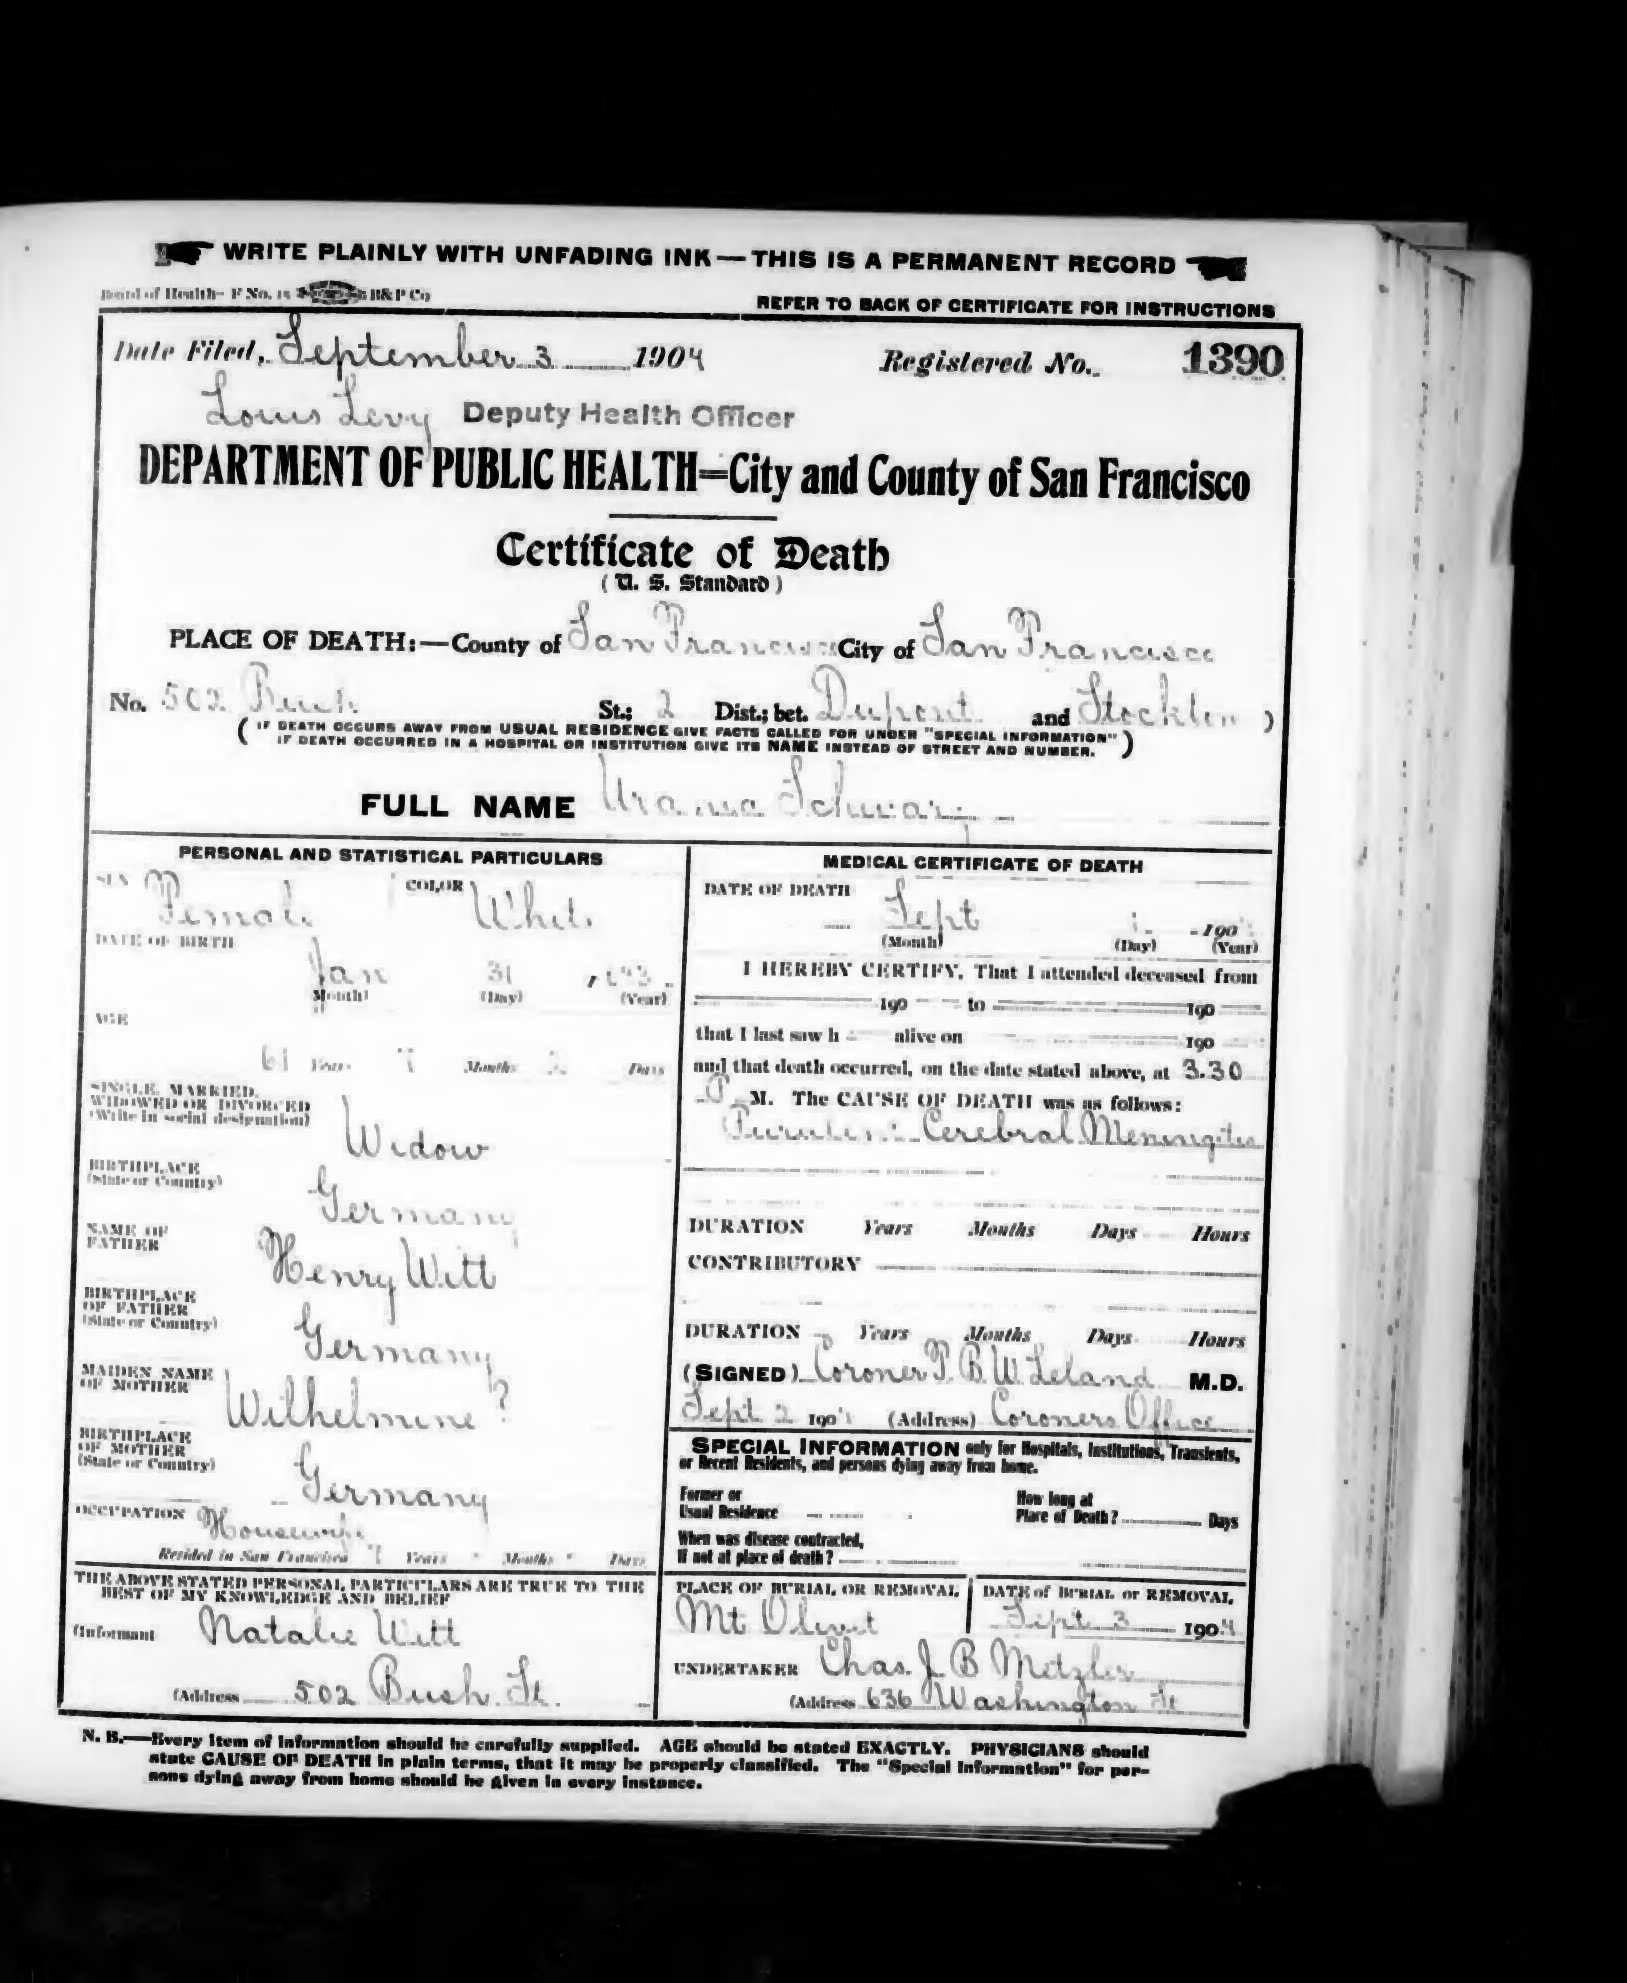 WRITE PLAINLY WITH UNFADING INK—THIS IS A PERMANENT RECORD
Board of Health—F No. 15 B&P Co
REFER TO BACK OF CERTIFICATE FOR INSTRUCTIONS
Date Filed, September 3 1904 Registered No. 1390
Louis Levy Deputy Health Officer
DEPARTMENT OF PUBLIC HEALTH=City and County of San Francisco
Certificate of Death
(U. S. Standard)
PLACE OF DEATH:—County of San Francisco City of San Francisco
No. 502 Bush St.; 2 Dist.; bet. Dupont and Stockton )
( IF DEATH OCCURS AWAY FROM USUAL RESIDENCE GIVE FACTS CALLED FOR UNDER "SPECIAL INFORMATION"
IF DEATH OCCURRED IN A HOSPITAL OR INSTITUTION GIVE ITS NAME INSTEAD OF STREET AND NUMBER. )
FULL NAME Urania Schwarz
PERSONAL AND STATISTICAL PARTICULARS
SEX Female COLOR White
DATE OF BIRTH
Jan 31
(Month) (Day) (Year)
AGE
61 Years 7 Months 2 Days
SINGLE, MARRIED,
WIDOWED OR DIVORCED
(Write in social designation)
Widow
BIRTHPLACE
(State or Country)
Germany
NAME OF
FATHER
Henry Witt
BIRTHPLACE
OF FATHER
(State or Country)
Germany
MAIDEN NAME
OF MOTHER
Wilhelmine ?
BIRTHPLACE
OF MOTHER
(State or Country)
Germany
OCCUPATION Housewife
Resided in San Francisco Years Months Days
THE ABOVE STATED PERSONAL PARTICULARS ARE TRUE TO THE
BEST OF MY KNOWLEDGE AND BELIEF
(Informant Natalie Witt
(Address 502 Bush St.
MEDICAL CERTIFICATE OF DEATH
DATE OF DEATH
Sept 190
(Month) (Day) (Year)
I HEREBY CERTIFY, That I attended deceased from
190 to 190
that I last saw h alive on 190
and that death occurred, on the date stated above, at 3.30
P. M. The CAUSE OF DEATH was as follows:
Purulent Cerebral Meningitis
DURATION Years Months Days Hours
CONTRIBUTORY
DURATION Years Months Days Hours
(SIGNED) Coroner T. B. W. Leland M.D.
Sept 2 190 (Address) Coroners Office
SPECIAL INFORMATION only for Hospitals, Institutions, Transients,
or Recent Residents, and persons dying away from home.
Former or
Usual Residence
How long at
Place of Death? Days
When was disease contracted,
If not at place of death?
PLACE OF BURIAL OR REMOVAL
Mt Olivet
DATE of BURIAL or REMOVAL
Sept 3 1904
UNDERTAKER Chas. J. B Metzler
(Address 636 Washington St
N. B.—Every item of information should be carefully supplied. AGE should be stated EXACTLY. PHYSICIANS should
state CAUSE OF DEATH in plain terms, that it may be properly classified. The "Special Information" for per-
sons dying away from home should be given in every instance.